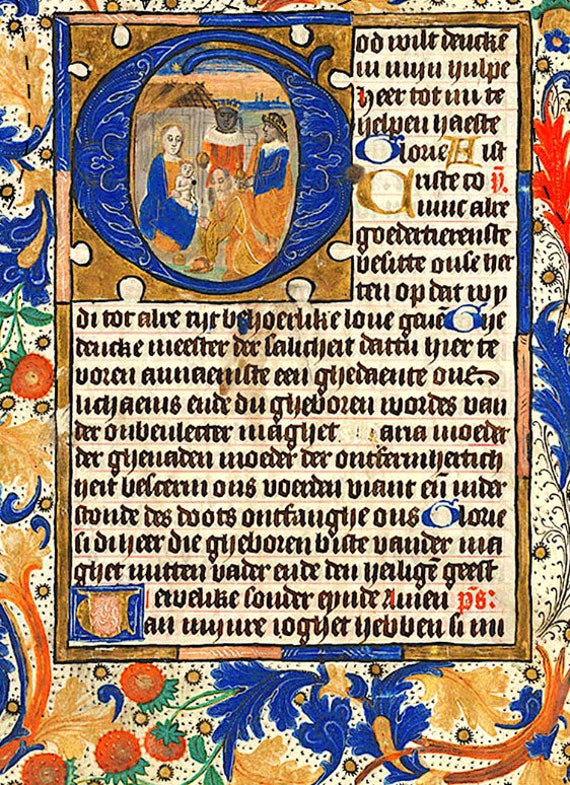 God wilt dencken
in mijn hulpe
heer tot mi te
helpen haeste
Glorie Ist
Criste co ỹ.
nunc alre
goedertierenste
besitte onse her
ten op dat wy
di tot alre tijt behoerlike love gevē Ghe
dencke meester der salicheit dattu hier te
voren annaemste een ghedaente ons
lichaems ende du gheboren wordes van
der onbevlecter maghet aria moeder
der ghenaden moeder der ontfermhertich
heit bescerm ons voerden viant eñ inder
stonde des doots ontfanghe ons Glorie
si di heer die gheboren biste vander ma
ghet mitten vader ende den heiligē geest
I ewelike sonder eynde Amen p̄s:
an mijnre ioghet hebben si mi